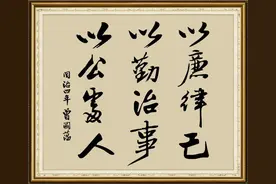 以廉律己
以勤治事
以公处人
同治四年 曾国藩